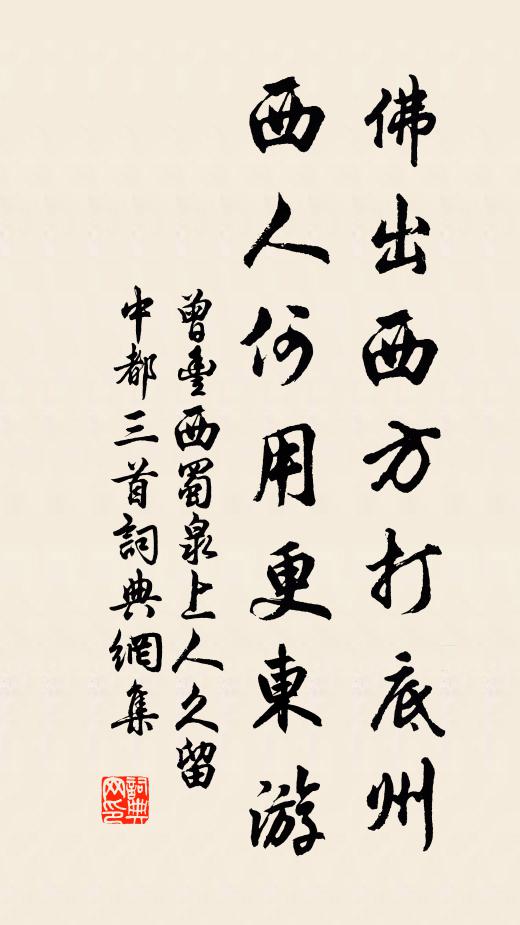 佛出西方打底州
西人何用更東游
曾豊西蜀泉上人久留
中都三首詞典網集
詞典网印